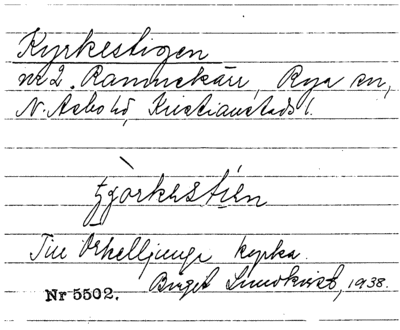 Kyrkestigen
nr 2. Rammekärr, Rya sn,
N. Åsbo hd, Kristianstads l.
tjörkestien
Till Örkelljunga kyrka.
Birgit Lindkvist, 1938.
Nr 5502.